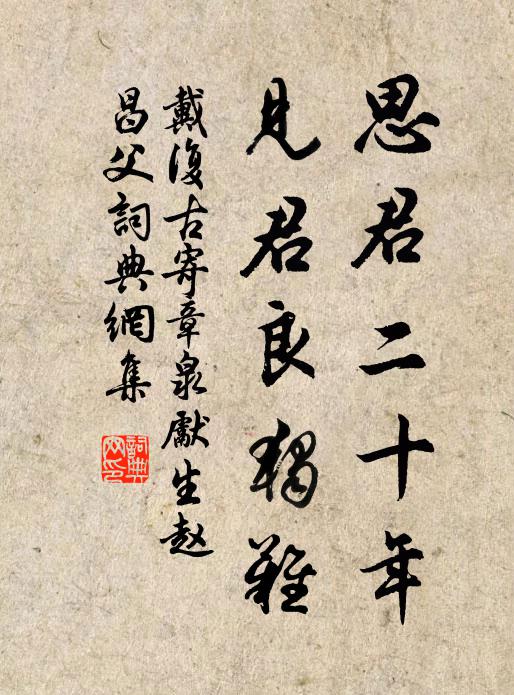 思君二十年
見君良獨難
戴復古寄章泉獻生赵
昌父詞典網集
詞典網印